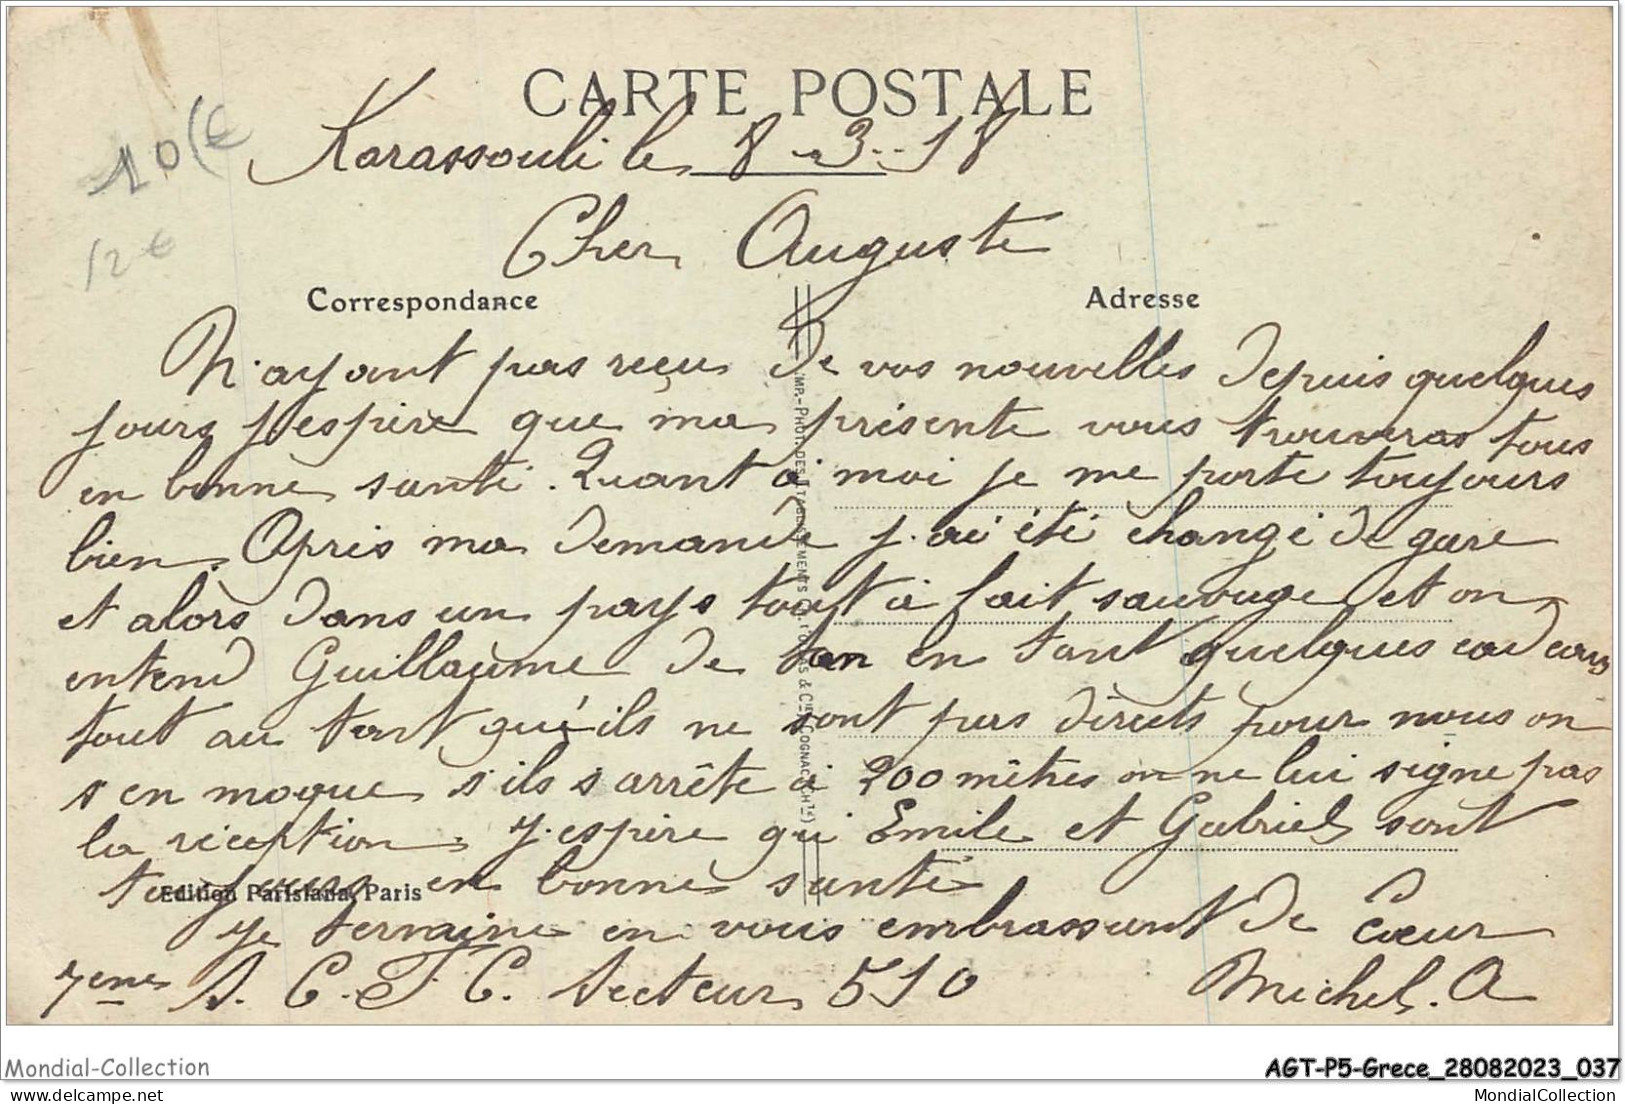 CARTE POSTALE
10 €
12 €
Karassouli le 8-3-18
Cher Auguste
Correspondance
Adresse
N'ayant pas reçu de vos nouvelles depuis quelques
jours j'espère que ma présente vous trouveras tous
en bonne santé. Quant à moi je me porte toujours
bien. Après ma demande j'ai été changé de gare
et alors dans un pays tout à fait sauvage et on
entend Guillaume de tan en tant quelques
tout au tant qu'ils ne sont pas diruts pour nous on
s'en moque s'ils s'arrête à 200 mêtres on ne lui signe pas
la réception, J'espère qui Emile et Gabriel sont
toujours en bonne santé
je termine en vous embrassant de Cœur
7eme S. C. F. C. Secteur 510 Michel. A
Edition Parisiana, Paris
IMP.-PHOT. DES ETABLISSEMENTS & Cie COGNAC (CHte)
Mondial-Collection
AGT-P5-Grece_28082023_037
MondialCollection